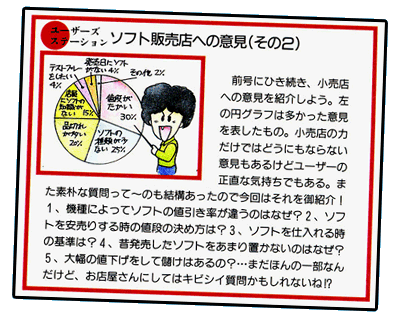 ユーザーズ
ステーション
ソフト販売店への意見(その2)
発売日にソフト
がない4%
その他2%
テストプレー
をしたい
4%
店員に
ソフトの
知識が
ない15%
値段が
たかい
30%
品切れ
が多い
20%
ソフトの
種類がす
ない25%
前号にひき続き、小売店
への意見を紹介しよう。左
の円グラフは多かった意見
を表したもの。小売店の力
だけではどうにもならない
意見もあるけどユーザーの
正直な気持ちでもある。ま
た素朴な質問って〜のも結構あったので今回はそれを御紹介!
1、機種によってソフトの値引き率が違うのはなぜ?2、ソフ
トを安売りする時の値段の決め方は?3、ソフトを仕入れる時
の基準は?4、昔発売したソフトをあまり置かないのはなぜ?
5、大幅の値下げをして儲けはあるの?…まだほんの一部なん
だけど、お店屋さんにしてはキビシイ質問かもしれないね!?